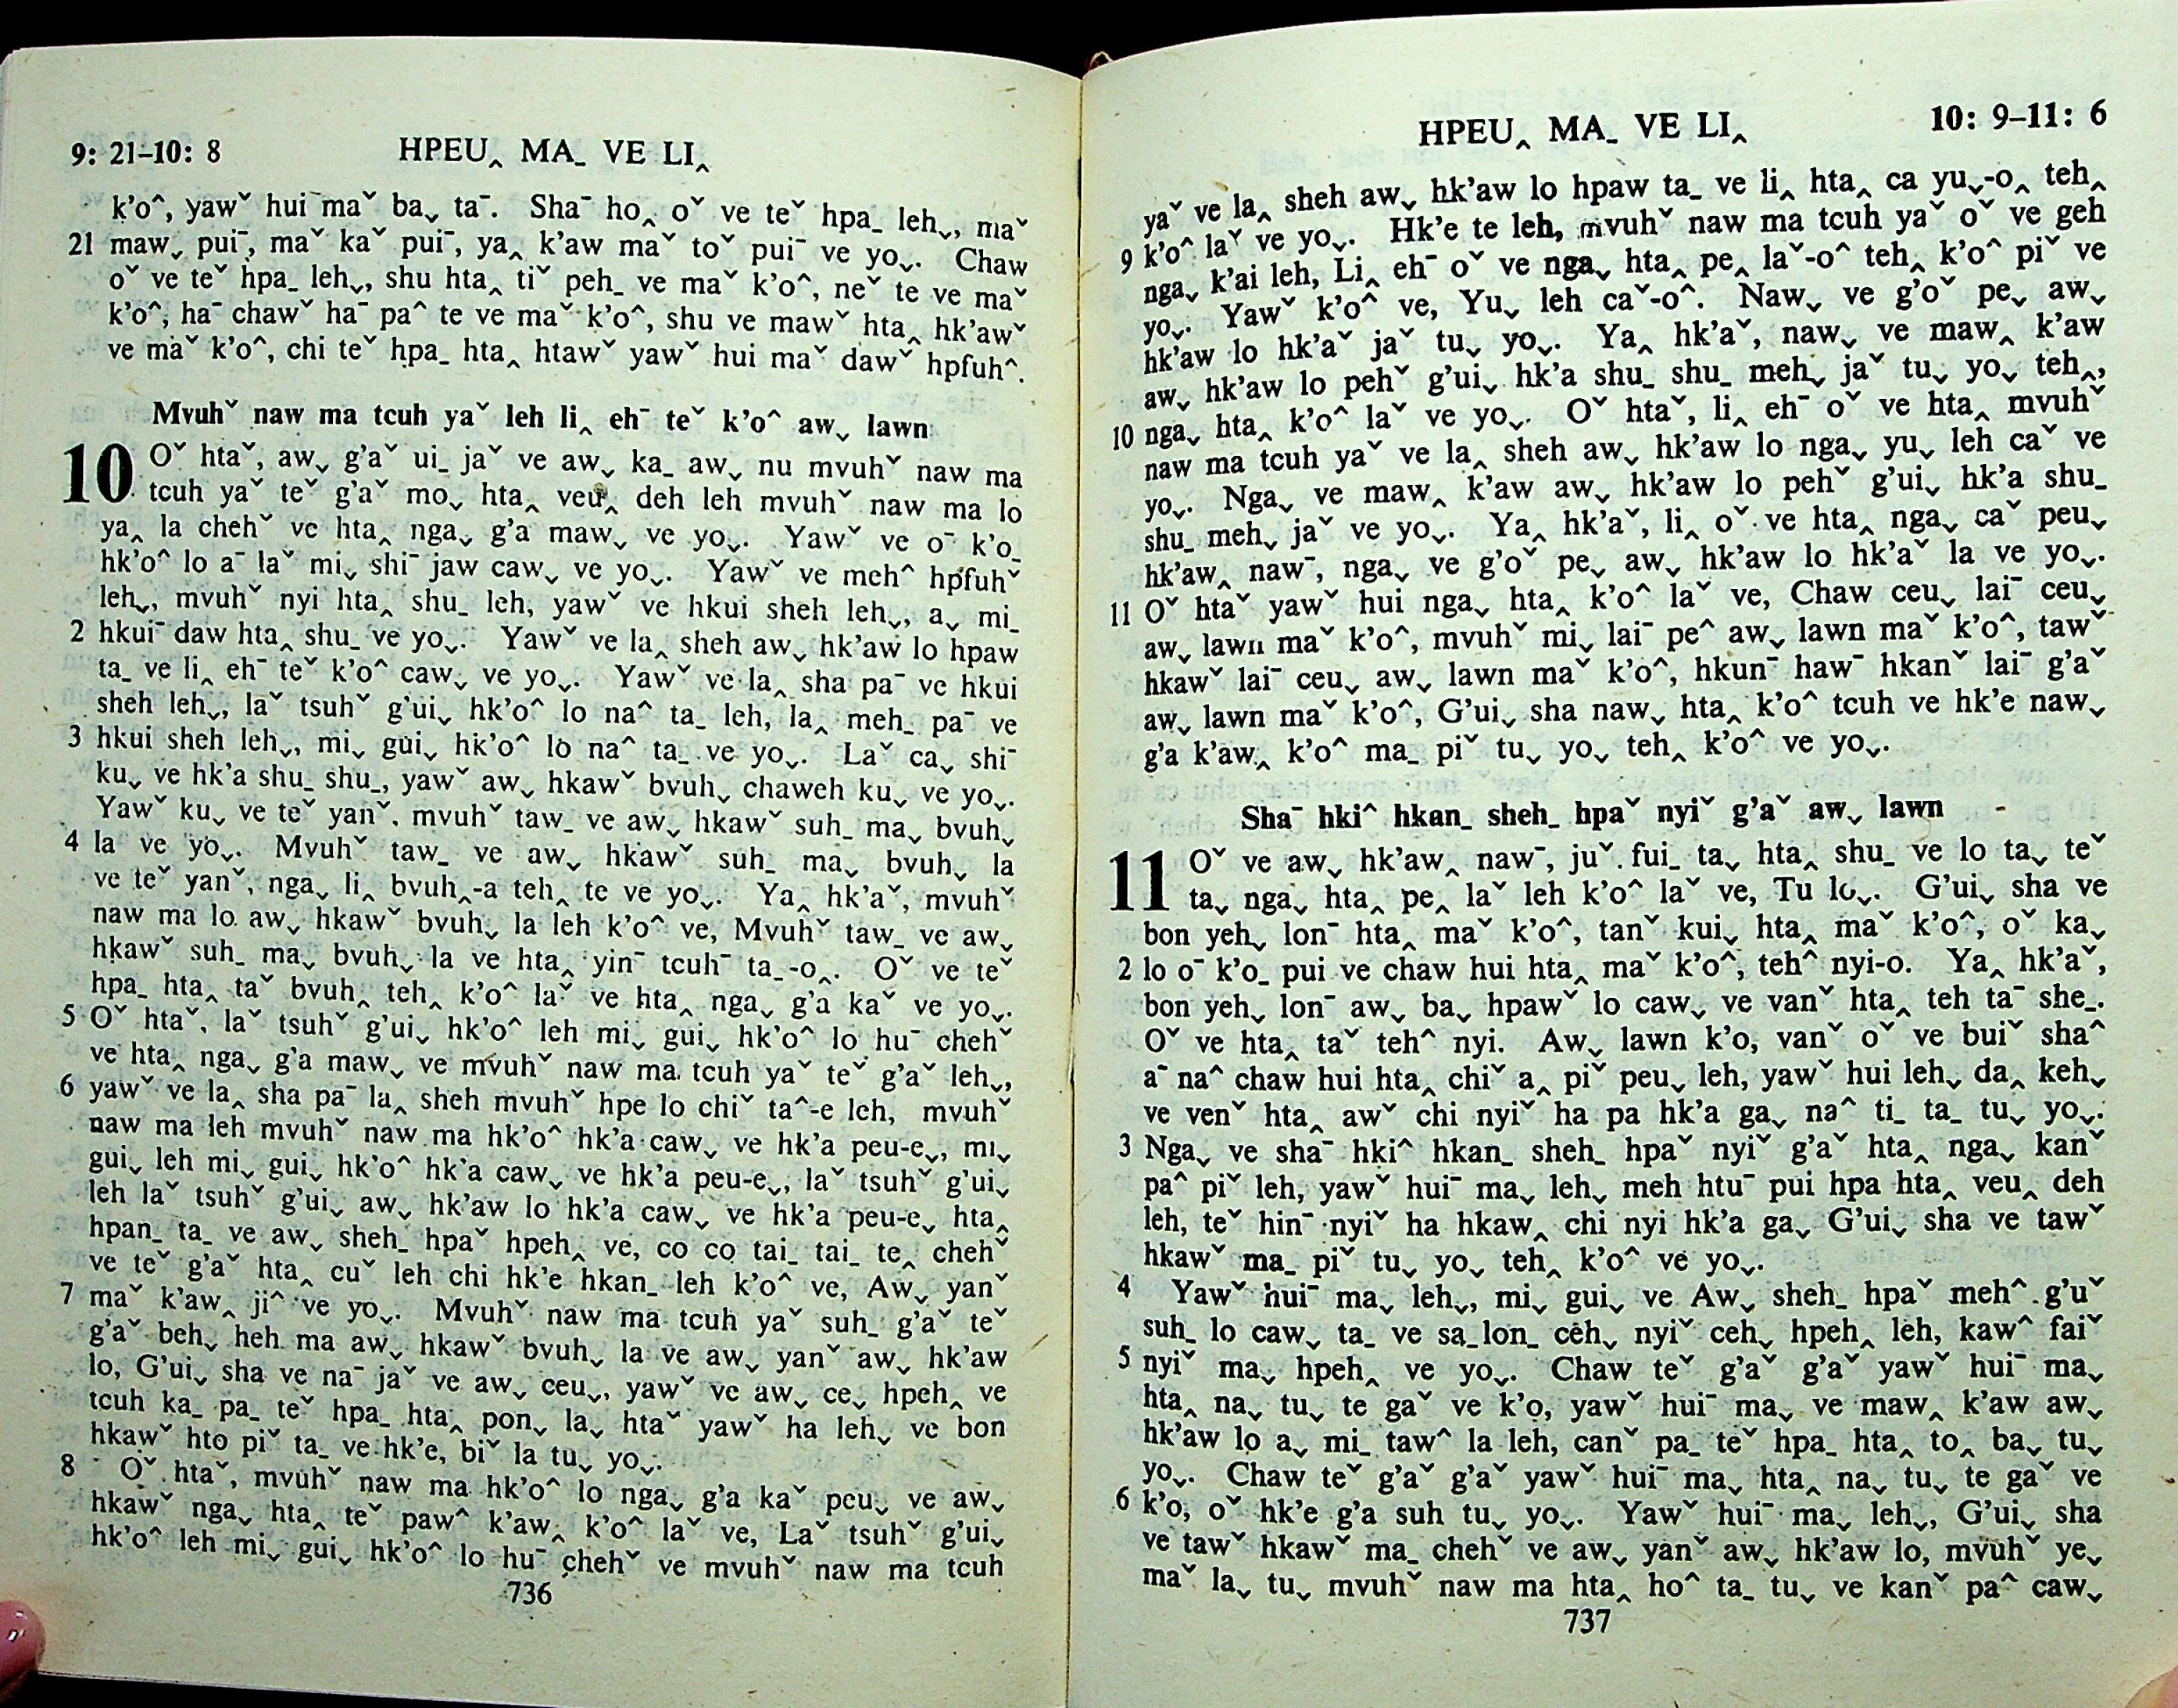 9: 21–10: 8
HPEU‸ MA_ VE LI‸
k'o^, yawˇ hui maˇ ba⌄ taˉ. Shaˉ ho‸ oˇ ve teˇ hpa_ leh⌄, maˇ
21 maw⌄ puiˉ, maˇ kaˇ puiˉ, ya‸ k'aw maˇ toˇ puiˉ ve yo⌄. Chaw
oˇ ve teˇ hpa_ leh⌄, shu hta‸ tiˇ peh_ ve maˇ k'o^, neˇ te ve maˇ
k'o^, haˉ chawˇ haˉ pa^ te ve maˇ k'o^, shu ve mawˇ hta‸ hk'awˇ
ve maˇ k'o^, chi teˇ hpa_ hta‸ htawˇ yawˇ hui maˇ dawˇ hpfuh^.
Mvuhˇ naw ma tcuh yaˇ leh li‸ ehˉ teˇ k'o^ aw⌄ lawn
10 Oˇ htaˇ, aw⌄ g'aˇ ui_ jaˇ ve aw⌄ ka_ aw⌄ nu mvuhˇ naw ma
tcuh yaˇ teˇ g'aˇ mo⌄ hta‸ veu‸ deh leh mvuhˇ naw ma lo
ya‸ la chehˇ ve hta‸ nga⌄ g'a maw⌄ ve yo⌄. Yawˇ ve oˉ k'o_
hk'o^ lo aˉ laˇ mi⌄ shiˉ jaw caw⌄ ve yo⌄. Yawˇ ve meh^ hpfuhˇ
leh⌄, mvuhˇ nyi hta‸ shu_ leh, yawˇ ve hkui sheh leh⌄, a⌄ mi_
2 hkuiˉ daw hta‸ shu_ ve yo⌄. Yawˇ ve la‸ sheh aw⌄ hk'aw lo hpaw
ta_ ve li‸ ehˉ teˇ k'o^ caw⌄ ve yo⌄. Yawˇ ve la‸ sha paˉ ve hkui
sheh leh⌄, laˇ tsuhˇ g'ui⌄ hk'o^ lo na^ ta_ leh, la‸ meh_ paˉ ve
3 hkui sheh leh⌄, mi⌄ gui⌄ hk'o^ lo na^ ta_ ve yo⌄. Laˇ ca⌄ shiˉ
ku⌄ ve hk'a shu_ shu_, yawˇ aw⌄ hkawˇ bvuh⌄ chaweh ku⌄ ve yo⌄.
Yawˇ ku⌄ ve teˇ yanˇ, mvuhˇ taw_ ve aw⌄ hkawˇ suh_ ma⌄ bvuh⌄
4 la ve yo⌄. Mvuhˇ taw_ ve aw⌄ hkawˇ suh_ ma⌄ bvuh⌄ la
ve teˇ yanˇ, nga⌄ li‸ bvuh‸-a teh‸ te ve yo⌄. Ya‸ hk'aˇ, mvuhˇ
naw ma lo aw⌄ hkawˇ bvuh⌄ la leh k'o^ ve, Mvuhˇ taw_ ve aw⌄
hkawˇ suh_ ma⌄ bvuh⌄ la ve hta‸ yinˉ tcuhˉ ta_-o‸. Oˇ ve teˇ
hpa_ hta‸ taˇ bvuh‸ teh‸ k'o^ laˇ ve hta‸ nga⌄ g'a kaˇ ve yo⌄.
5 Oˇ htaˇ, laˇ tsuhˇ g'ui⌄ hk'o^ leh mi⌄ gui⌄ hk'o^ lo huˉ chehˇ
ve hta‸ nga⌄ g'a maw⌄ ve mvuhˇ naw ma tcuh yaˇ teˇ g'aˇ leh⌄,
6 yawˇ ve la‸ sha paˉ la‸ sheh mvuhˇ hpe lo chiˇ ta^-e leh, mvuhˇ
naw ma leh mvuhˇ naw ma hk'o^ hk'a caw⌄ ve hk'a peu-e⌄, mi⌄
gui⌄ leh mi⌄ gui⌄ hk'o^ hk'a caw⌄ ve hk'a peu-e⌄, laˇ tsuhˇ g'ui⌄
leh laˇ tsuhˇ g'ui⌄ aw⌄ hk'aw lo hk'a caw⌄ ve hk'a peu-e⌄ hta‸
hpan_ ta_ ve aw⌄ sheh_ hpaˇ hpeh‸ ve, co co tai_ tai_ te‸ chehˇ
ve teˇ g'aˇ hta‸ cuˇ leh chi hk'e hkan_ leh k'o^ ve, Aw⌄ yanˇ
7 maˇ k'aw‸ ji^ ve yo⌄. Mvuhˇ naw ma tcuh yaˇ suh_ g'aˇ teˇ
g'aˇ beh⌄ heh ma aw⌄ hkawˇ bvuh⌄ la ve aw⌄ yanˇ aw⌄ hk'aw
lo, G'ui⌄ sha ve naˉ jaˇ ve aw⌄ ceu⌄, yawˇ ve aw⌄ ce⌄ hpeh‸ ve
tcuh ka_ pa_ teˇ hpa_ hta‸ pon⌄ la⌄ htaˇ yawˇ ha leh⌄ ve bon
hkawˇ hto piˇ ta_ ve hk'e, biˇ la tu⌄ yo⌄.
8 Oˇ htaˇ, mvuhˇ naw ma hk'o^ lo nga⌄ g'a kaˇ peu⌄ ve aw⌄
hkawˇ nga⌄ hta‸ teˇ paw^ k'aw‸ k'o^ laˇ ve, Laˇ tsuhˇ g'ui⌄
hk'o^ leh mi⌄ gui⌄ hk'o^ lo huˉ chehˇ ve mvuhˇ naw ma tcuh
736
HPEU‸ MA_ VE LI‸
10: 9–11: 6
yaˇ ve la‸ sheh aw⌄ hk'aw lo hpaw ta_ ve li‸ hta‸ ca yu⌄-o‸ teh‸
9 k'o^ laˇ ve yo⌄. Hk'e te leh, mvuhˇ naw ma tcuh yaˇ oˇ ve geh
nga⌄ k'ai leh, Li‸ ehˉ oˇ ve nga⌄ hta‸ pe‸ laˇ-o^ teh‸ k'o^ piˇ ve
yo⌄. Yawˇ k'o^ ve, Yu⌄ leh caˇ-o^. Naw⌄ ve g'oˇ pe⌄ aw⌄
hk'aw lo hk'aˇ jaˇ tu⌄ yo⌄. Ya‸ hk'aˇ, naw⌄ ve maw‸ k'aw
aw⌄ hk'aw lo pehˇ g'ui⌄ hk'a shu_ shu_ meh⌄ jaˇ tu⌄ yo⌄ teh‸,
10 nga⌄ hta‸ k'o^ la ve yo⌄. Oˇ htaˇ, li‸ ehˉ oˇ ve hta‸ mvuhˇ
naw ma tcuh yaˇ ve la‸ sheh aw⌄ hk'aw lo nga⌄ yu⌄ leh caˇ ve
yo⌄. Nga⌄ ve maw‸ k'aw aw⌄ hk'aw lo pehˇ g'ui⌄ hk'a shu_
shu_ meh⌄ jaˇ ve yo⌄. Ya‸ hk'aˇ, li‸ oˇ ve hta‸ nga⌄ caˇ peu⌄
hk'aw‸ nawˉ, nga⌄ ve g'oˇ pe⌄ aw⌄ hk'aw lo hk'aˇ la ve yo⌄.
11 Oˇ htaˇ yawˇ hui nga⌄ hta‸ k'o^ laˇ ve, Chaw ceu⌄ laiˉ ceu⌄
aw⌄ lawn maˇ k'o^, mvuhˇ mi⌄ laiˉ pe^ aw⌄ lawn maˇ k'o^, tawˇ
hkawˇ laiˉ ceu⌄ aw⌄ lawn maˇ k'o^, hkunˉ hawˉ hkanˇ laiˉ g'aˇ
aw⌄ lawn maˇ k'o^, G'ui⌄ sha naw⌄ hta‸ k'o^ tcuh ve hk'e naw⌄
g'a k'aw‸ k'o^ ma_ piˇ tu⌄ yo⌄ teh‸ k'o^ ve yo⌄.
Shaˉ hki^ hkan_ sheh_ hpaˇ nyiˇ g'aˇ aw⌄ lawn
11 Oˇ ve aw⌄ hk'aw‸ nawˉ, juˇ fui_ ta⌄ hta‸ shu_ ve lo ta⌄ teˇ
ta⌄ nga⌄ hta‸ pe‸ laˇ leh k'o^ laˇ ve, Tu lo⌄. G'ui⌄ sha ve
bon yeh⌄ lonˉ hta‸ maˇ k'o^, tanˇ kui⌄ hta‸ maˇ k'o^, oˇ ka⌄
2 lo oˉ k'o_ pui ve chaw hui hta‸ maˇ k'o^, teh^ nyi-o. Ya‸ hk'aˇ,
bon yeh⌄ lonˉ aw⌄ ba⌄ hpawˇ lo caw⌄ ve vanˇ hta‸ teh taˉ she_.
Oˇ ve hta‸ taˇ teh^ nyi. Aw⌄ lawn k'o, vanˇ oˇ ve buiˇ sha^
aˉ na^ chaw hui hta‸ chiˇ a‸ piˇ peu⌄ leh, yawˇ hui leh⌄ da‸ keh⌄
ve venˇ hta‸ awˇ chi nyiˇ ha pa hk'a ga⌄ na^ ti_ ta_ tu⌄ yo⌄.
3 Nga⌄ ve shaˉ hki^ hkan_ sheh_ hpaˇ nyiˇ g'aˇ hta‸ nga⌄ kanˇ
pa^ piˇ leh, yawˇ huiˉ ma⌄ leh⌄ meh htuˉ pui hpa hta‸ veu‸ deh
leh, teˇ hinˉ nyiˇ ha hkaw‸ chi nyi hk'a ga⌄ G'ui⌄ sha ve tawˇ
hkawˇ ma_ piˇ tu⌄ yo⌄ teh‸ k'o^ ve yo⌄.
4 Yawˇ huiˉ ma⌄ leh⌄, mi⌄ gui⌄ ve Aw⌄ sheh_ hpaˇ meh^ g'uˇ
suh_ lo caw⌄ ta_ ve sa_lon_ ceh⌄ nyiˇ ceh⌄ hpeh‸ leh, kaw^ faiˇ
5 nyiˇ ma⌄ hpeh‸ ve yo⌄. Chaw teˇ g'aˇ g'aˇ yawˇ huiˉ ma⌄
hta‸ na⌄ tu⌄ te gaˇ ve k'o, yawˇ huiˉ ma⌄ ve maw‸ k'aw aw⌄
hk'aw lo a⌄ mi_ taw^ la leh, canˇ pa_ teˇ hpa_ hta‸ to‸ ba⌄ tu⌄
yo⌄. Chaw teˇ g'aˇ g'aˇ yawˇ huiˉ ma⌄ hta‸ na⌄ tu⌄ te gaˇ ve
6 k'o, oˇ hk'e g'a suh tu⌄ yo⌄. Yawˇ huiˉ ma⌄ leh⌄, G'ui⌄ sha
ve tawˇ hkawˇ ma_ chehˇ ve aw⌄ yanˇ aw⌄ hk'aw lo, mvuhˇ ye⌄
maˇ la⌄ tu⌄ mvuhˇ naw ma hta‸ ho^ ta_ tu⌄ ve kanˇ pa^ caw⌄
737